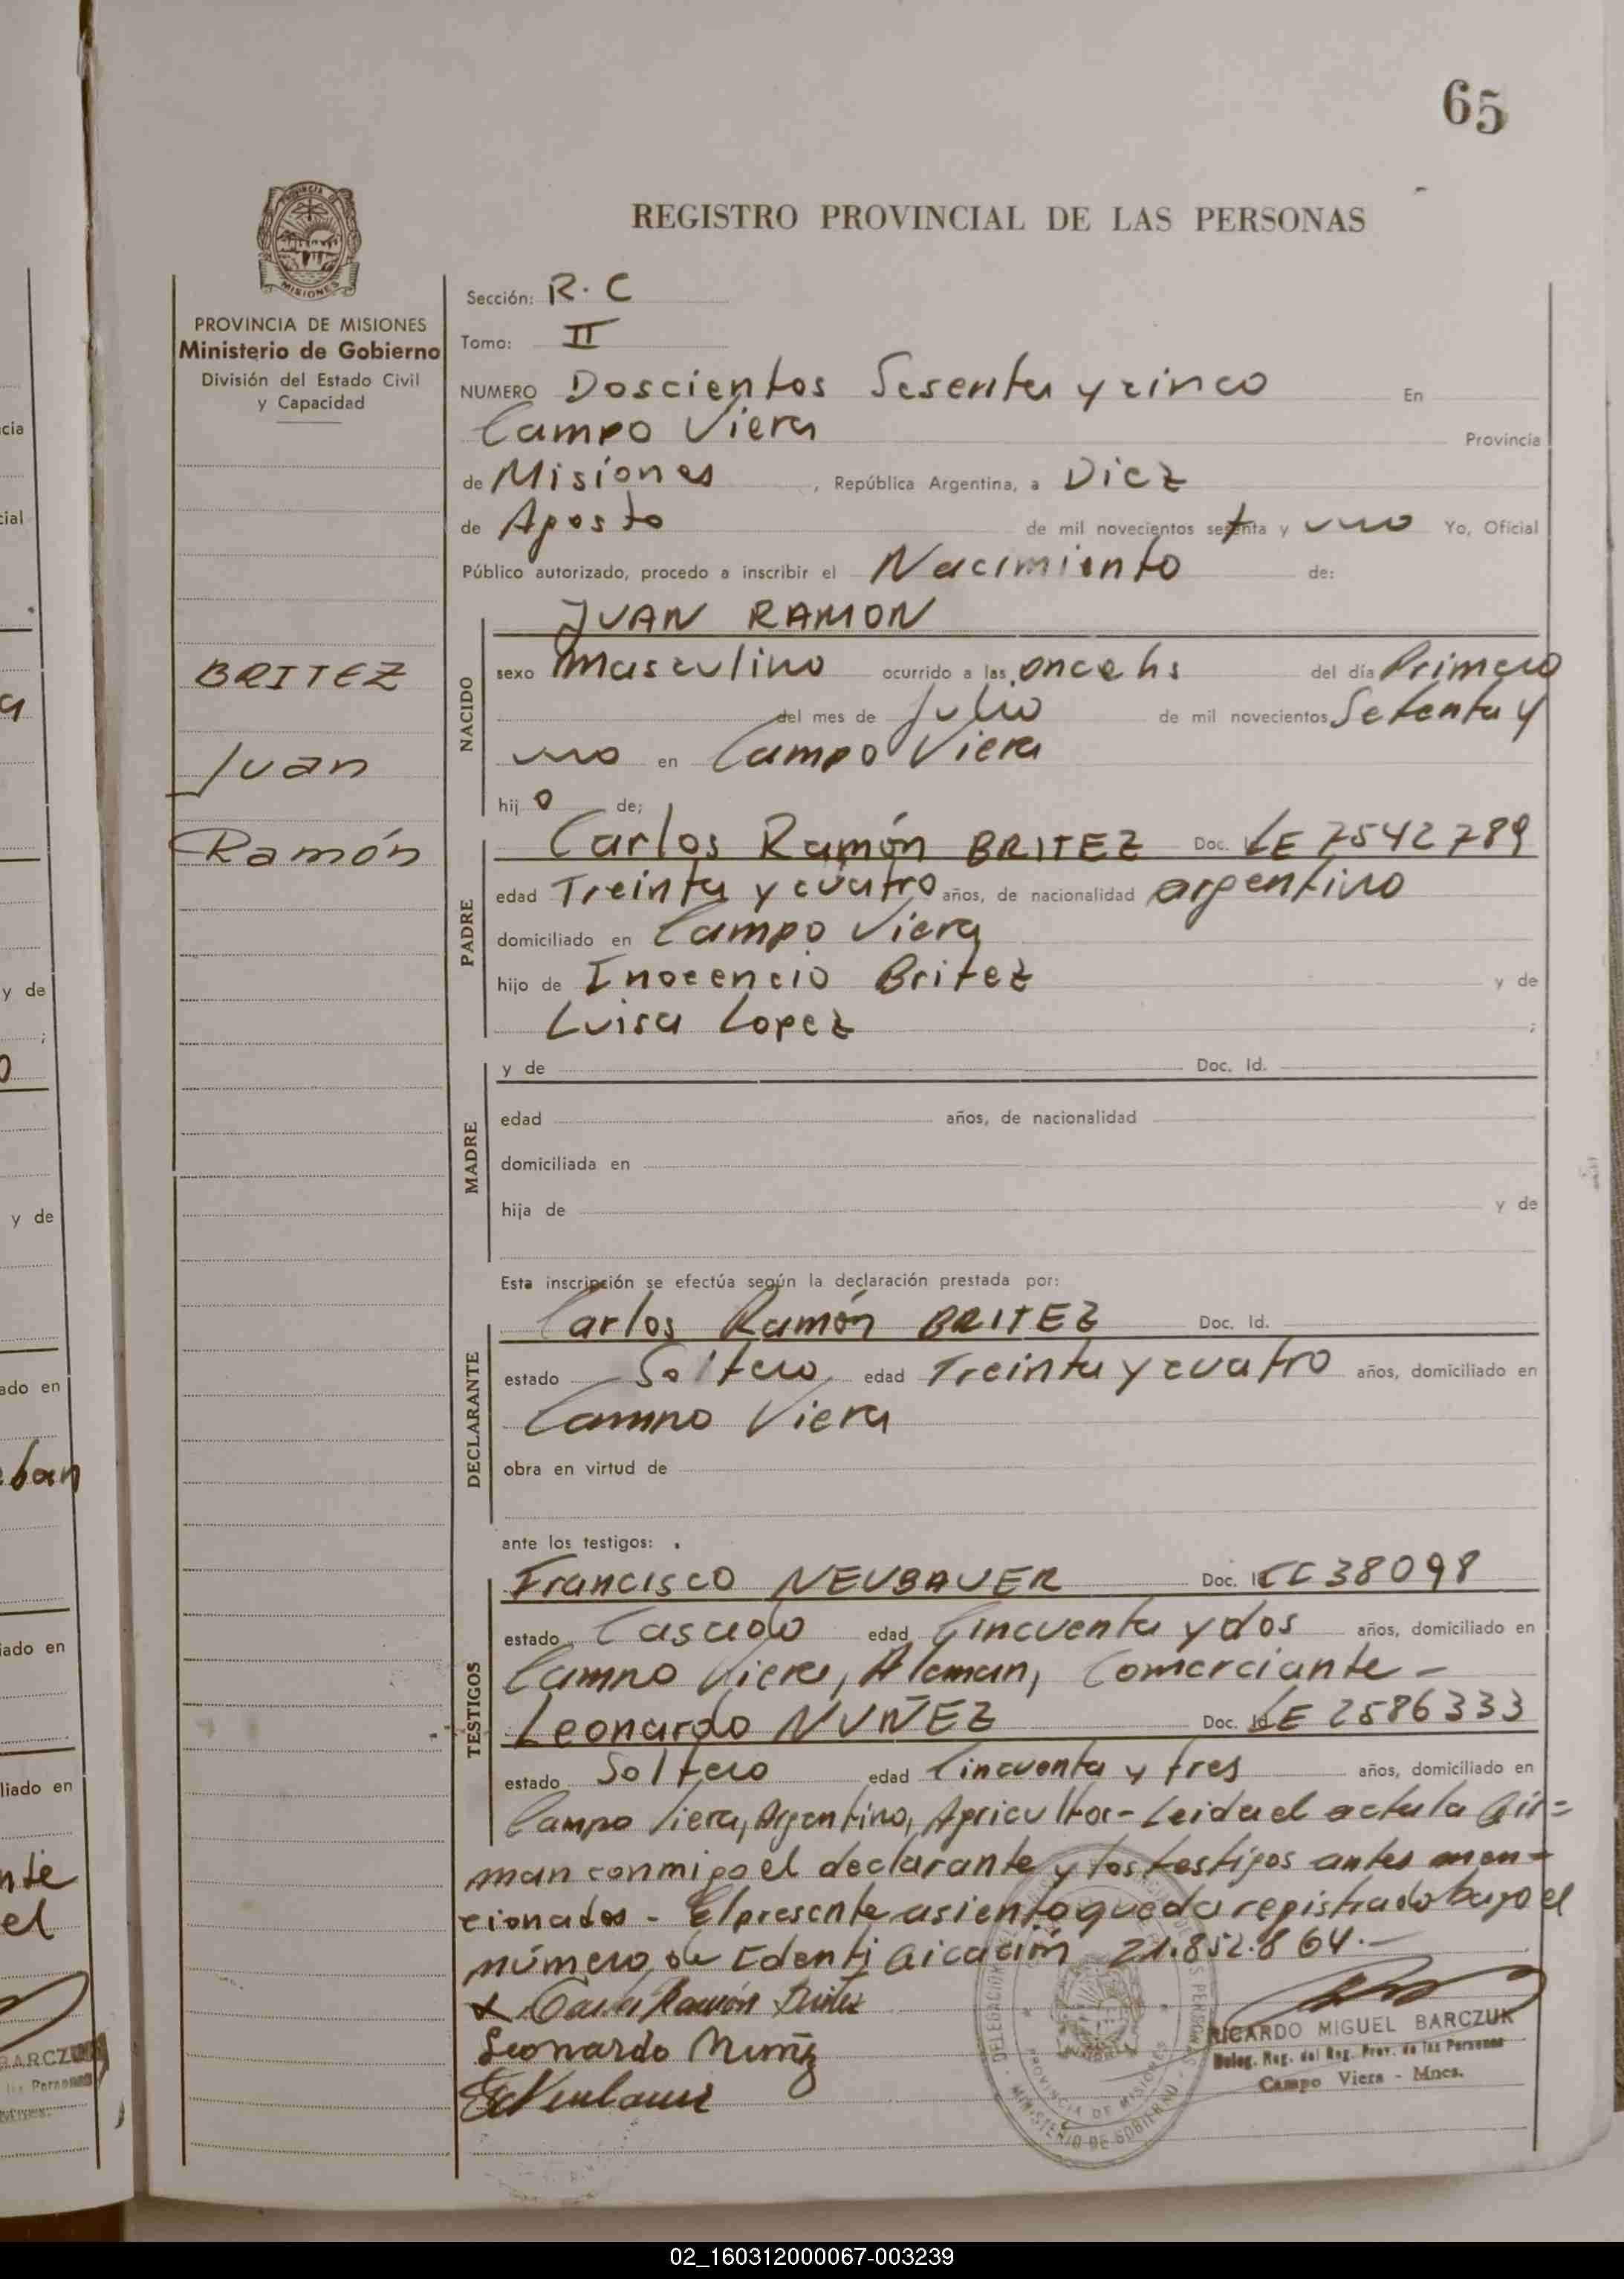 65
REGISTRO PROVINCIAL DE LAS PERSONAS
PROVINCIA
MISIONES
PROVINCIA DE MISIONES
Ministerio de Gobierno
División del Estado Civil
y Capacidad
BRITEZ
Juan
Ramón
Sección: R.C
Tomo: II
NUMERO Doscientos Sesenta y cinco En
Campo Viera Provincia
de Misiones, República Argentina, a Diez
de Agosto de mil novecientos setenta y uno Yo, Oficial
Público autorizado, procedo a inscribir el Nacimiento de:
JUAN RAMON
NACIDO
sexo Masculino ocurrido a las once hs del día Primero
del mes de Julio de mil novecientos Setenta y
uno en Campo Viera
hijo de;
PADRE
Carlos Ramón BRITEZ Doc. LE 7542789
edad Treinta y cuatro años, de nacionalidad argentino
domiciliado en Campo Viera
hijo de Inocencio Britez y de
Luisa Lopez ;
MADRE
y de Doc. Id.
edad años, de nacionalidad
domiciliada en
hija de y de
Esta inscripción se efectúa según la declaración prestada por:
DECLARANTE
Carlos Ramón BRITEZ Doc. Id.
estado Soltero edad Treinta y cuatro años, domiciliado en
Campo Viera
obra en virtud de
ante los testigos:
TESTIGOS
Francisco NEUBAUER Doc. CC 38098
estado Casado edad Cincuenta y dos años, domiciliado en
Campo Viera, Aleman, Comerciante -
Leonardo NUÑEZ Doc. Id. LE 2586333
estado Soltero edad Cincuenta y tres años, domiciliado en
Campo Viera, Argentino, Agricultor - Leida el acta la fir=
man conmigo el declarante y los testigos antes men-
cionados - El presente asiento queda registrado bajo el
número de Identificación 21.852.864.-
Carlos Ramón Britez
Leonardo Nuñez
Neubauer
PROVINCIA DE MISIONES
MINISTERIO DE GOBIERNO
RICARDO MIGUEL BARCZUK
Deleg. Reg. del Reg. Prov. de las Personas
Campo Viera - Mnes.
02_160312000067-003239